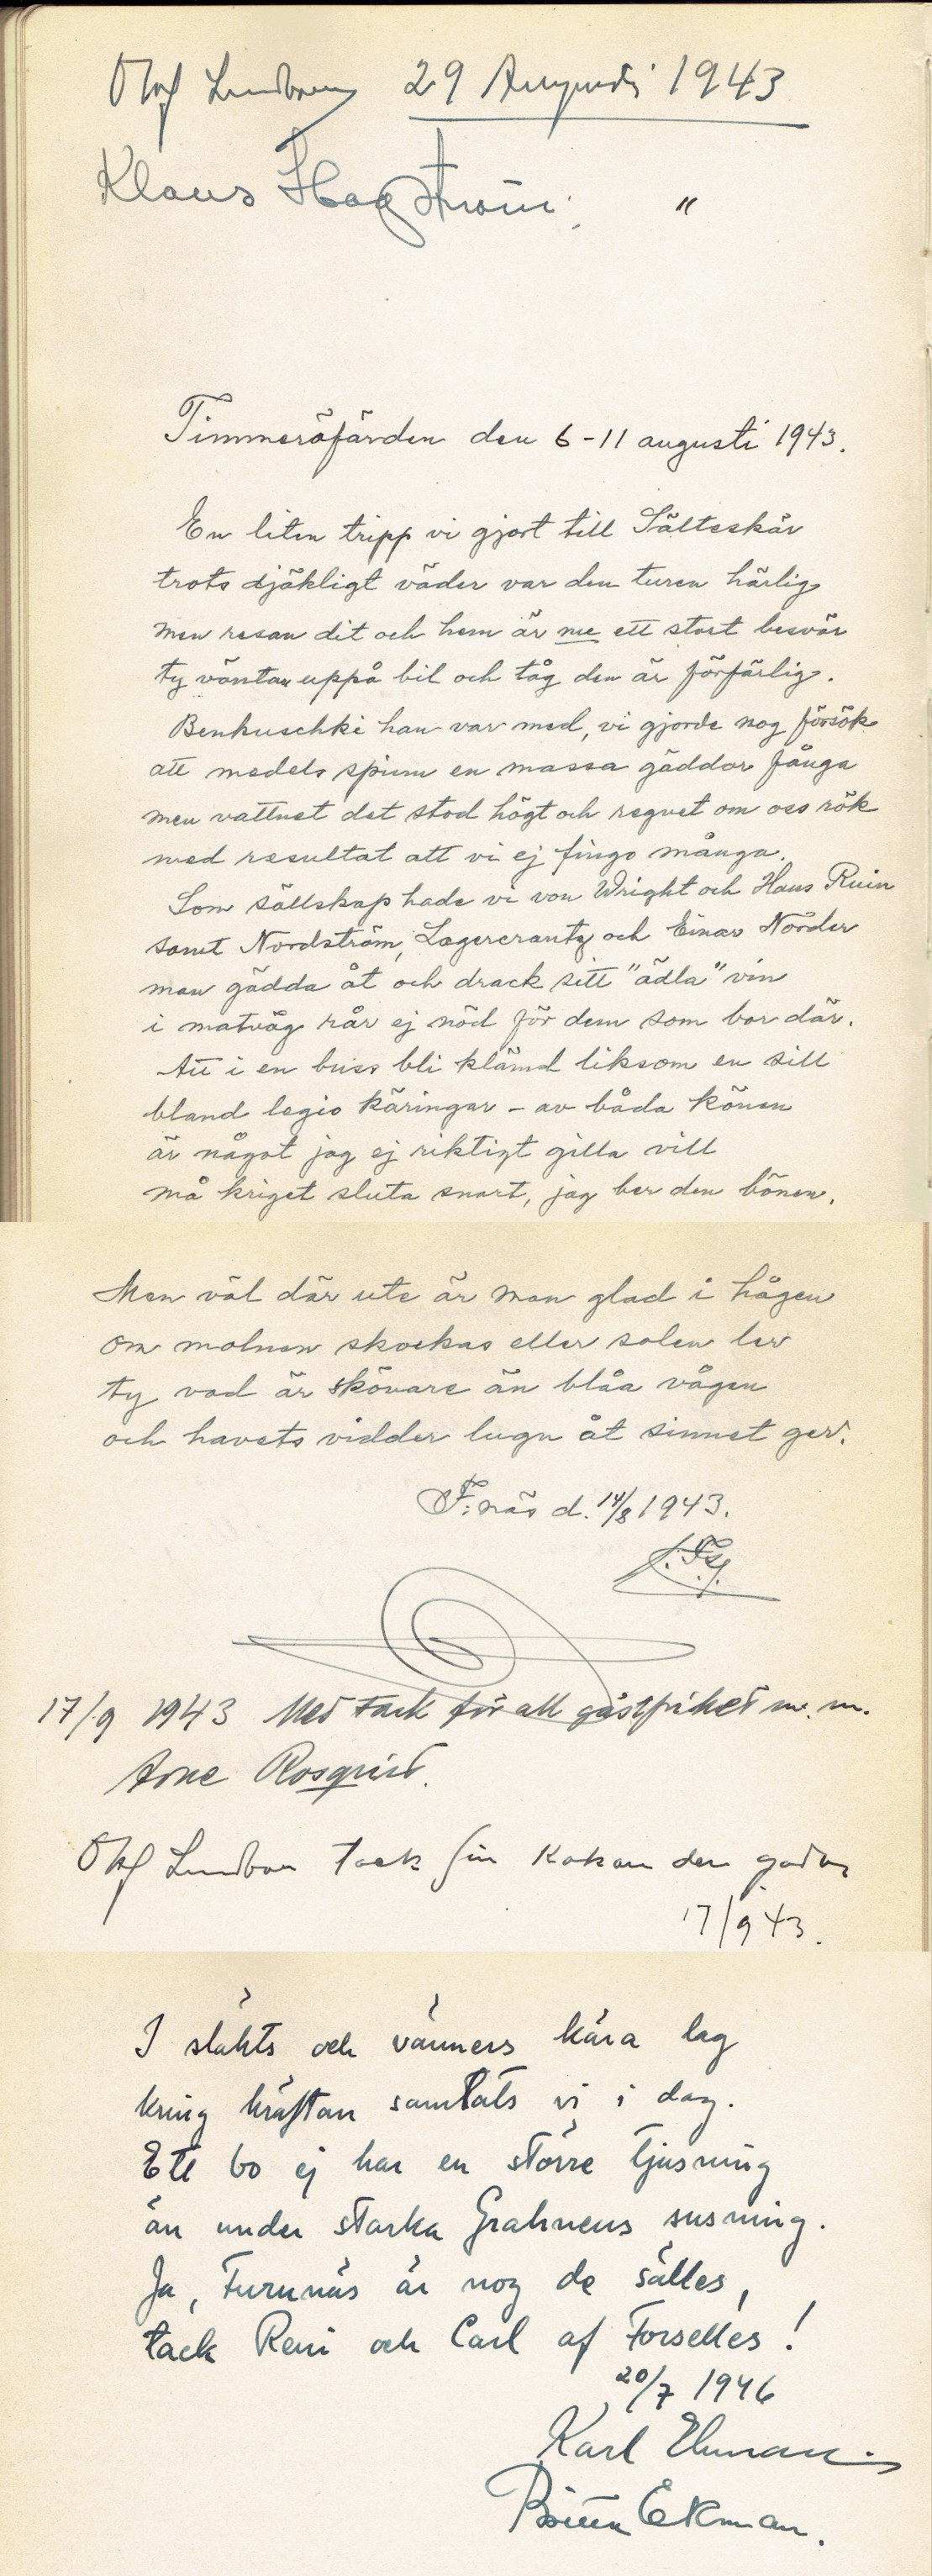 Olof Lundbom 29 Augusti 1943
Klaus Hagström "
Timmeröfärden den 6-11 augusti 1943.
En liten tripp vi gjort till Sälteskär
trots djäkligt väder var den turen härlig
men resan dit och hem är nu ett stort besvär
ty väntan uppå bil och tåg den är förfärlig.
Benkuschki han var med, vi gjorde nog försök
att medels spinn en massa gäddor fånga
men vattnet det stod högt och regnet om oss rök
med resultat att vi ej fingo många.
Som sällskap hade vi von Wright och Hans Ruin
samt Nordström, Lagercrantz och Einar Nörder
man gädda åt och drack sitt "ädla" vin
i matväg rår ej nöd för dem som bor där.
Att i en buss bli klämd liksom en sill
bland legio käringar - av båda könen
är något jag ej riktigt gilla vill
må kriget sluta snart, jag ber den bönen.
Men väl där ute är man glad i hågen
om molnen skockas eller solen ler
ty vad är skönare än blåa vågen
och havets vidder lugn åt sinnet ger.
F:näs d. 14/8 1943.
17/9 1943 Med tack för all gästfrihet m. m.
Arne Rosqvist.
Olof Lundbom tack för kakan den goda
17/9 43.
I släkts och vänners kära lag
kring kräftan samlats vi i dag.
Ett bo ej har en större tjusning
än under starka Grahnens susning.
Ja, Furunäs är nog de sälles,
tack Reni och Carl af Forselles!
20/7 1946
Karl Ekman
Ekman.